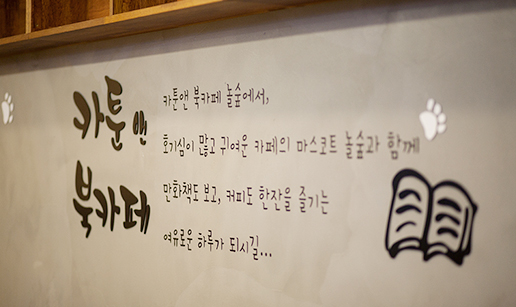 카툰 앤
북카페
카툰앤 북카페 놀숲에서,
호기심이 많고 귀여운 카페의 마스코트 놀숲과 함께
만화책도 보고, 커피도 한잔을 즐기는
여유로운 하루가 되시길...